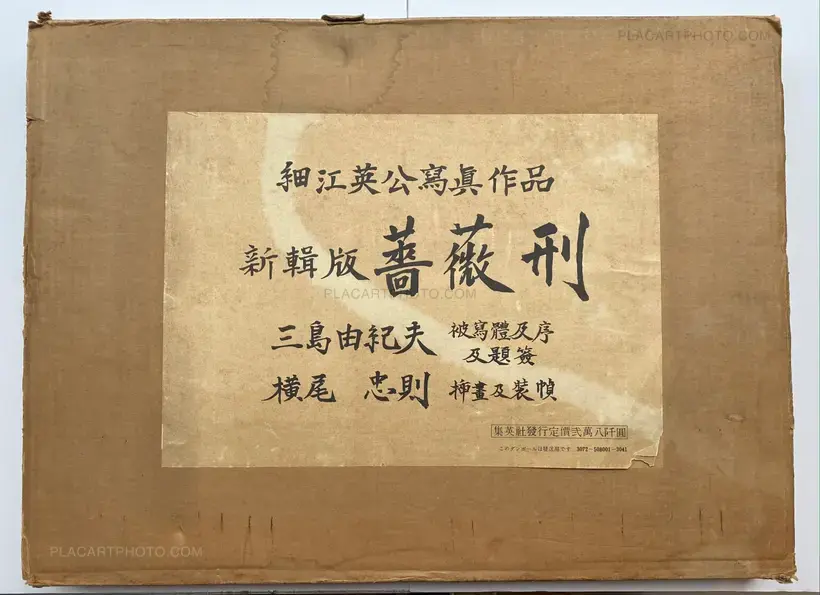 PLACARTPHOTO.COM
細江英公寫眞作品
新輯版 薔薇刑
PLACARTPHOTO.COM
三島由紀夫 被寫體及序
及題簽
横尾 忠則 挿畫及装幀
集英社發行定價弐萬八阡圓
このダンボールは發送用です 3072-508001-3041
PLACARTPHOTO.COM
PLACARTPHOTO.COM